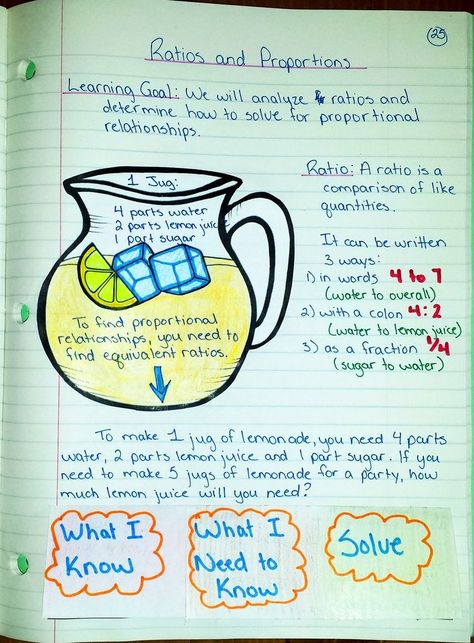 25
Ratios and Proportions
Learning Goal: We will analyze ratios and
determine how to solve for proportional
relationships.
1 Jug:
4 parts water
2 parts lemon juice
1 part sugar
To find proportional
relationships, you need to
find equivalent ratios.
Ratio: A ratio is a
comparison of like
quantities.
It can be written
3 ways:
1) in words 4 to 7
(water to overall)
2) with a colon 4:2
(water to lemon juice)
3) as a fraction 1/4
(sugar to water)
To make 1 jug of lemonade, you need 4 parts
water, 2 parts lemon juice and 1 part sugar. If you
need to make 5 jugs of lemonade for a party, how
much lemon juice will you need?
What I
Know
What I
Need to
Know
Solve